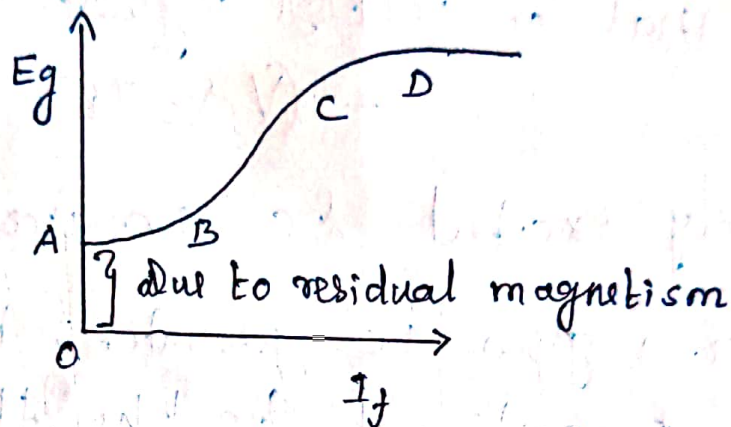 Eg
D
C
A
B
} Due to residual magnetism
O
If